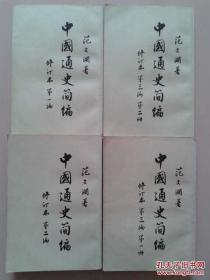 范文瀾著
中國通史简编
修订本 第一编
范文瀾著
中國通史简编
修订本 第三编 第二册
范文瀾著
中國通史简编
修订本 第二编
范文瀾著
中國通史简编
修订本 第三编 第一册